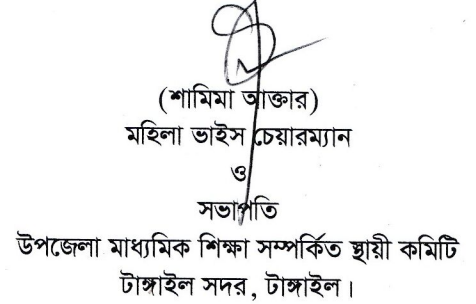 (শামিমা আক্তার)
মহিলা ভাইস চেয়ারম্যান
ও
সভাপতি
উপজেলা মাধ্যমিক শিক্ষা সম্পর্কিত স্থায়ী কমিটি
টাঙ্গাইল সদর, টাঙ্গাইল।